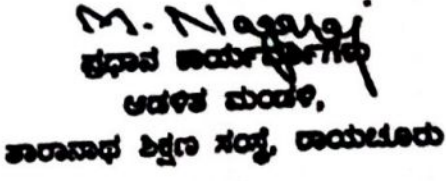 M. Nagaraj
ಪ್ರಧಾನ ಕಾರ್ಯದರ್ಶಿಗಳು
ಆಡಳಿತ ಮಂಡಳಿ,
ತಾರಾನಾಥ ಶಿಕ್ಷಣ ಸಂಸ್ಥೆ, ರಾಯಚೂರು